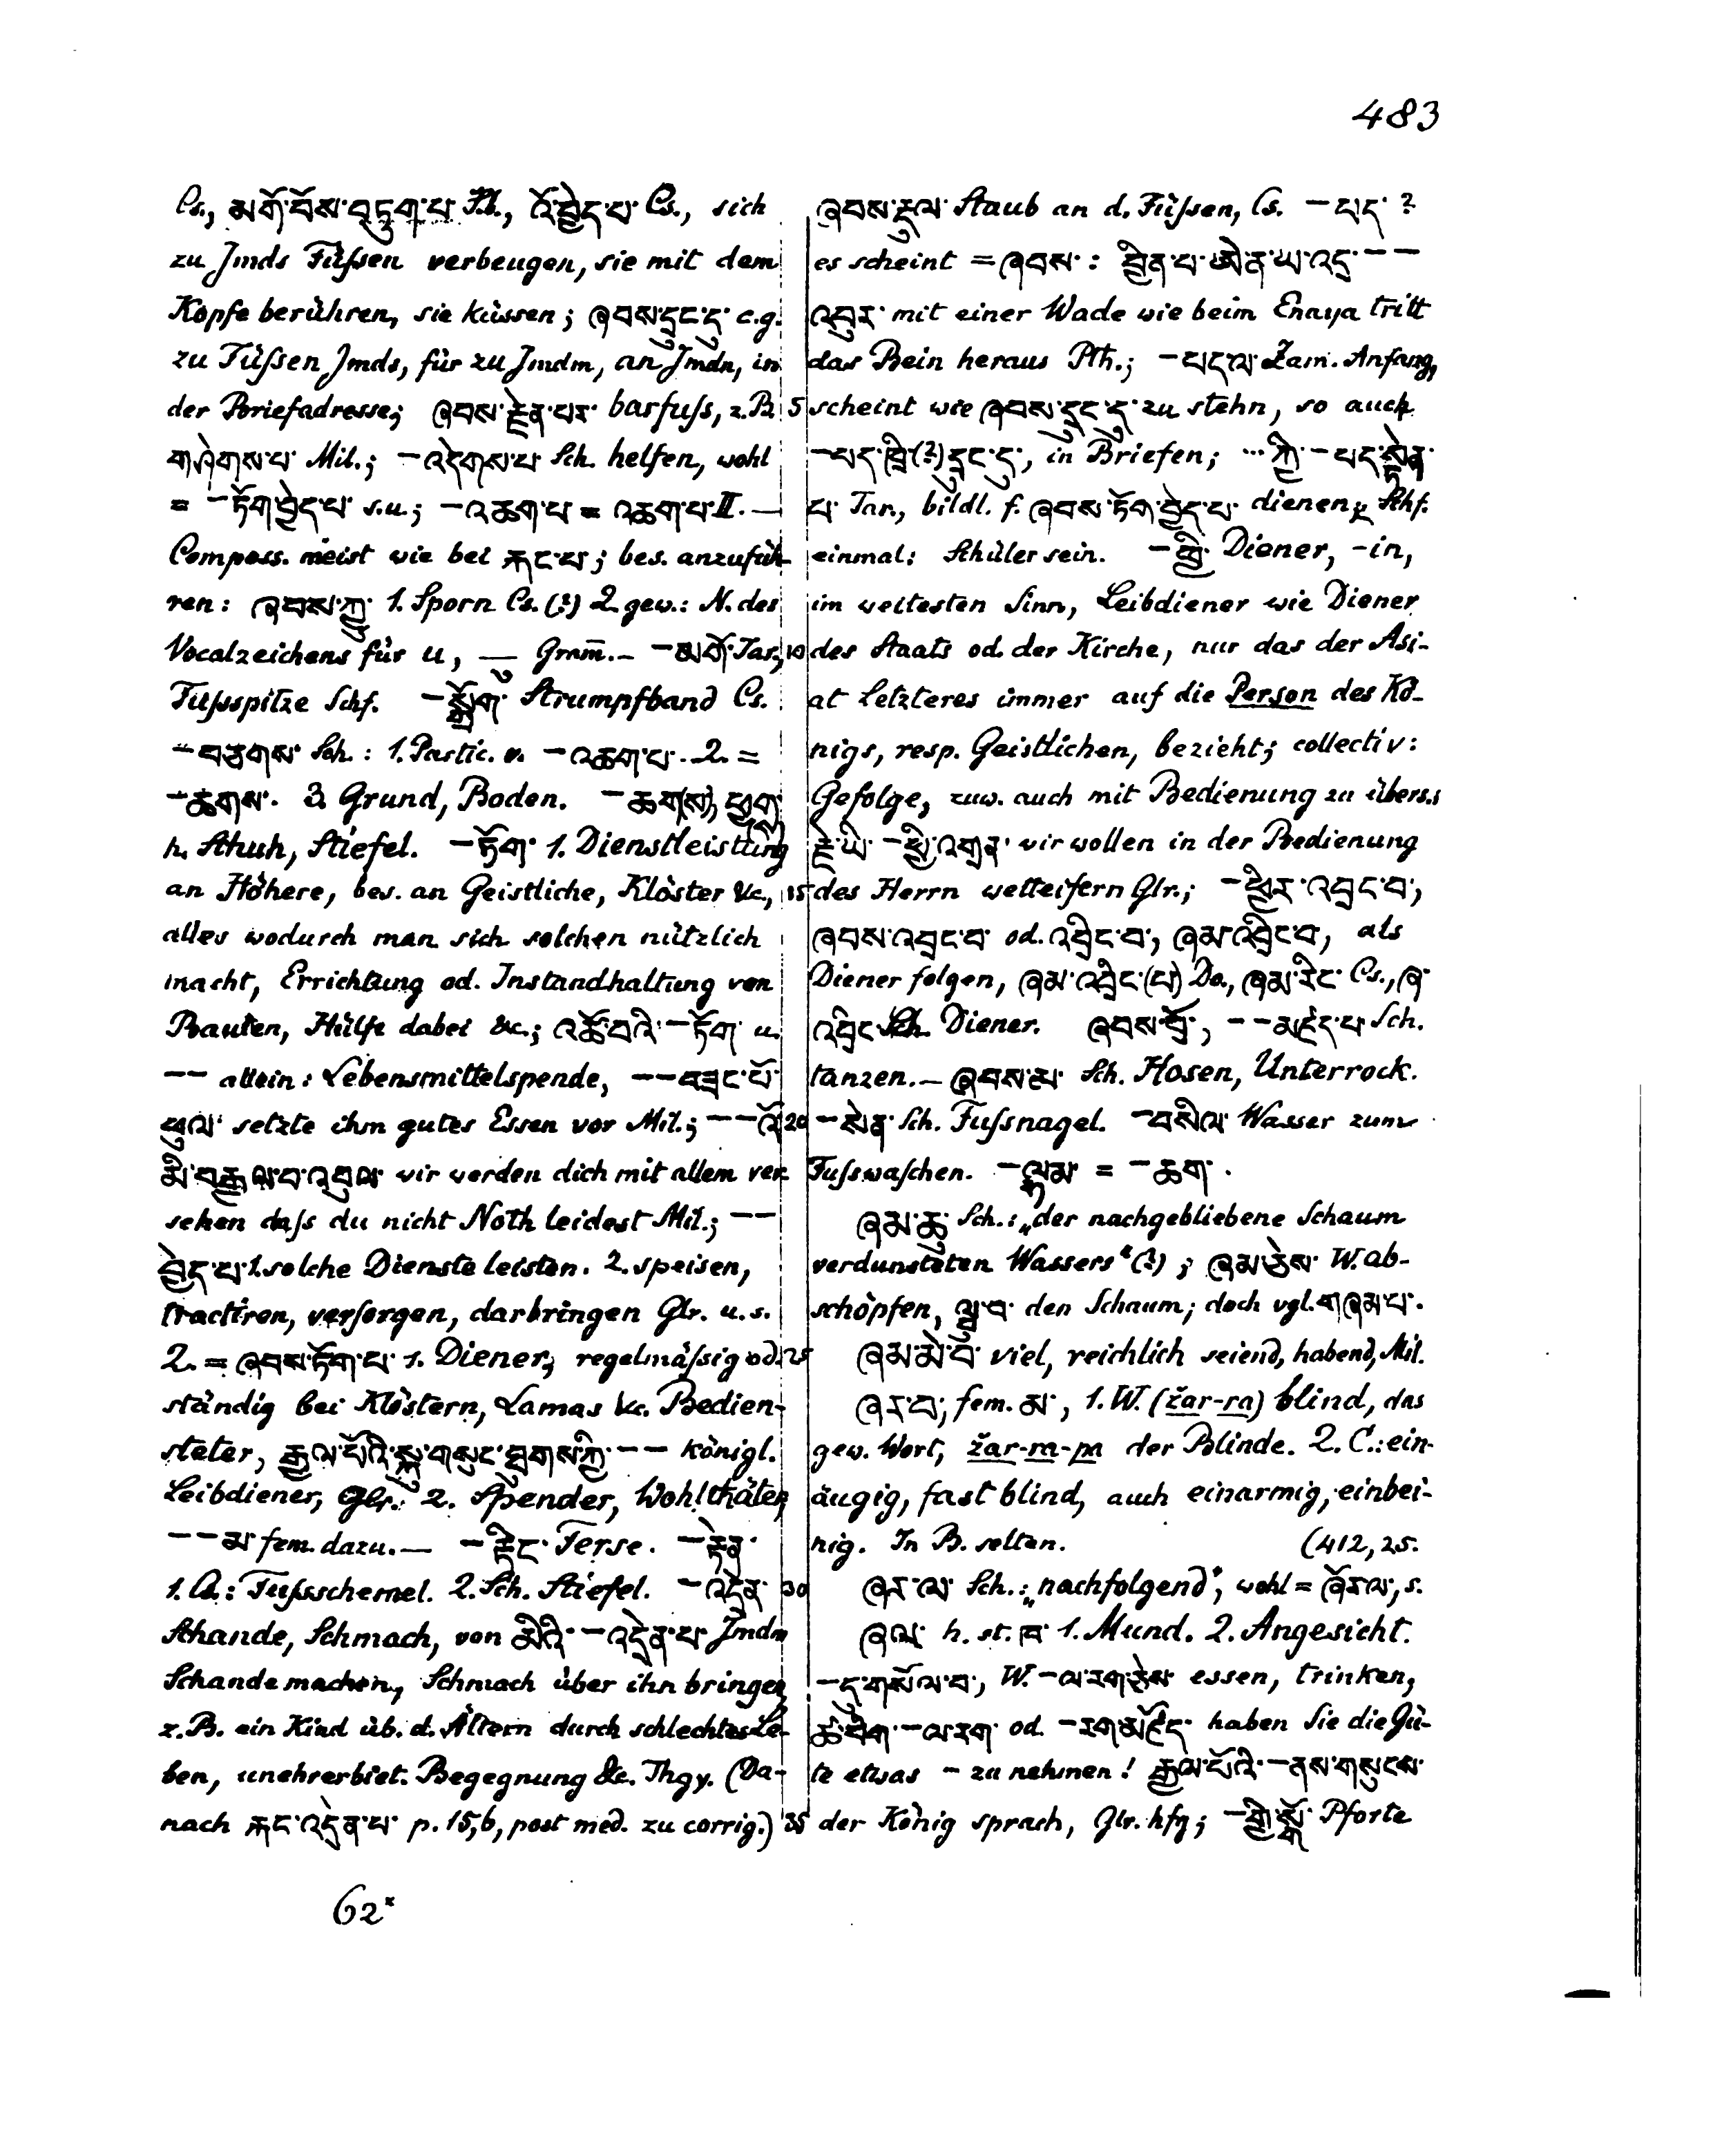 483
Cs., མགོ་བོས་བཏུག་པ་ Tb., འོ་བྱེད་པ་ Cs., sich
zu Jmds Füssen verbeugen, sie mit dem
Kopfe berühren, sie küssen; ཞབས་དྲུང་དུ་ c.g.
zu Füssen Jmds, für zu Jmdm, an Jmdn, in
der Briefadresse; ཞབས་རྗེན་པར་ barfuss, z.B.
གཤེགས་པ་ Mil.; –འདེགས་པ་ Sch. helfen, wohl
= –ཏོག་བྱེད་པ་ s.u.; –འཆག་པ = འཆག་པ་ II. —
Composs. meist wie bei རྐང་པ་; bes. anzufüh-
ren: ཞབས་ཀྱུ་ 1. Sporn Cs. (?) 2. gew.: N. des
Vocalzeichens für u, — Gram̅. – –མགོ་ Tar.,
Fussspitze Schf. –སྒྲོག་ Strumpfband Cs.
–བཅགས་ Sch.: 1. Partic. v. –འཆག་པ་. 2. =
–ཆགས་. 3. Grund, Boden. –ཆག(ས), ཕྱག་
h. Schuh, Stiefel. –ཏོག་ 1. Dienstleistung
an Höhere, bes. an Geistliche, Klöster &c.,
alles wodurch man sich solchen nützlich
macht, Errichtung od. Instandhaltung von
Bauten, Hülfe dabei &c.; འཚོ་བའི་–ཏོག་ u.
–– allein: Lebensmittelspende, ––བཟང་པོ་
ཕུལ་ setzte ihm gutes Essen vor Mil.; ––འོ་
མི་བརྒྱལ་བ་འབུལ་ wir werden dich mit allem ver-
sehen dass du nicht Noth leidest Mil.; ––
བྱེད་པ་ 1. solche Dienste leisten. 2. speisen,
tractiren, versorgen, darbringen Glr. u. s.
2. = ཞབས་ཏོག་པ་ 1. Diener, regelmässig od.
ständig bei Klöstern, Lamas &c. Bedien-
steter, རྒྱལ་པོའི་སྐུ་གསུང་ཐུགས་ཀྱི་–– königl.
Leibdiener, Glr. 2. Spender, Wohlthäter,
––མ་ fem. dazu. — –རྟིང་ Ferse. –རྟེན་
1. Cs.: Fussschemel. 2. Sch. Stiefel. –འདྲེན་
Schande, Schmach, von མིའི་–འདྲེན་པ་ Jmdm
Schande machen, Schmach über ihn bringen,
z.B. ein Kind üb. d. Ältern durch schlechtes Le-
ben, unehrerbiet. Begegnung &c. Thgy. (Da-
nach རྐང་འདྲེན་པ་ p. 15,b, post med. zu corrig.)
62*
ཞབས་རྡུལ་ Staub an d. Füssen, Cs. –པད་ ?
es scheint = ཞབས་: བྱིན་པ་ཨེ་ན་ཡ་འདྲ་––
འབུར་ mit einer Wade wie beim Enaya tritt
das Bein heraus Pth.; –པདལ་ Zam. Anfang,
5 scheint wie ཞབས་དྲུང་དུ་ zu stehn, so auch
–པད་ཁྲི་(?) དྲུང་དུ་, in Briefen; ...ཀྱི་–པད་སྟེན་
པ་ Tar., bildl. f. ཞབས་ཏོག་བྱེད་པ་ dienen; Schf.
einmal: Schüler sein. –ཕྱི་ Diener, -in,
im weitesten Sinn, Leibdiener wie Diener
10 des Staats od. der Kirche, nur das der Asi-
at Letzteres immer auf die Person des Kö-
nigs, resp. Geistlichen, bezieht; collectiv:
Gefolge, zuw. auch mit Bedienung zu übers.:
རྗེ་ཡི་–ཕྱི་འགྲན་ wir wollen in der Bedienung
15 des Herrn wetteifern Glr.; –ཕྱིར་འབྲང་བ་,
ཞབས་འབྲང་བ་ od. འབྲིང་བ་, ཞམ་འབྲིང་བ་, als
Diener folgen, ཞམ་འབྲིང་(པ) Do., ཞམ་རིང་ Cs., ཞ་
འབྲིང་ Sch. Diener. ཞབས་བྲོ་, ––མཛེད་པ་ Sch.
tanzen. — ཞབས་མ་ Sch. Hosen, Unterrock.
20 –སེན་ Sch. Fussnagel. –བསིལ་ Wasser zum
Fusswaschen. –ལྷམ་ = –ཆག་.
ཞམ་ཆུ་ Sch.: „der nachgebliebene Schaum
verdunsteten Wassers“ (?); ཞམ་ཅེས་ W. ab-
schöpfen, ལྦུ་བ་ den Schaum; doch vgl. གཞམ་པ་.
25 ཞམ་མེ་བ་ viel, reichlich seiend, habend, Mil.
ཞར་བ་, fem. མ་, 1. W. (žar-ra) blind, das
gew. Wort, žar-ra-pa der Blinde. 2. C.: ein-
äugig, fast blind, auch einarmig, einbei-
nig. In B. selten. (412, 25.
30 ཞར་ལ་ Sch.: „nachfolgend“, wohl = ཞོརལ་, s.
ཞལ་ h. st. ཁ་ 1. Mund. 2. Angesicht.
–དུ་གསོལ་བ་, W. –ལ་རག་ཅེས་ essen, trinken,
ཆེ་བེག་–ལ་རག་ od. –རག་མཛོད་ haben Sie die Gü-
te etwas – zu nehmen! རྒྱལ་པོའི་–ནས་གསུངས་
35 der König sprach, Glr. hfg; –གྱི་སྒོ་ Pforte